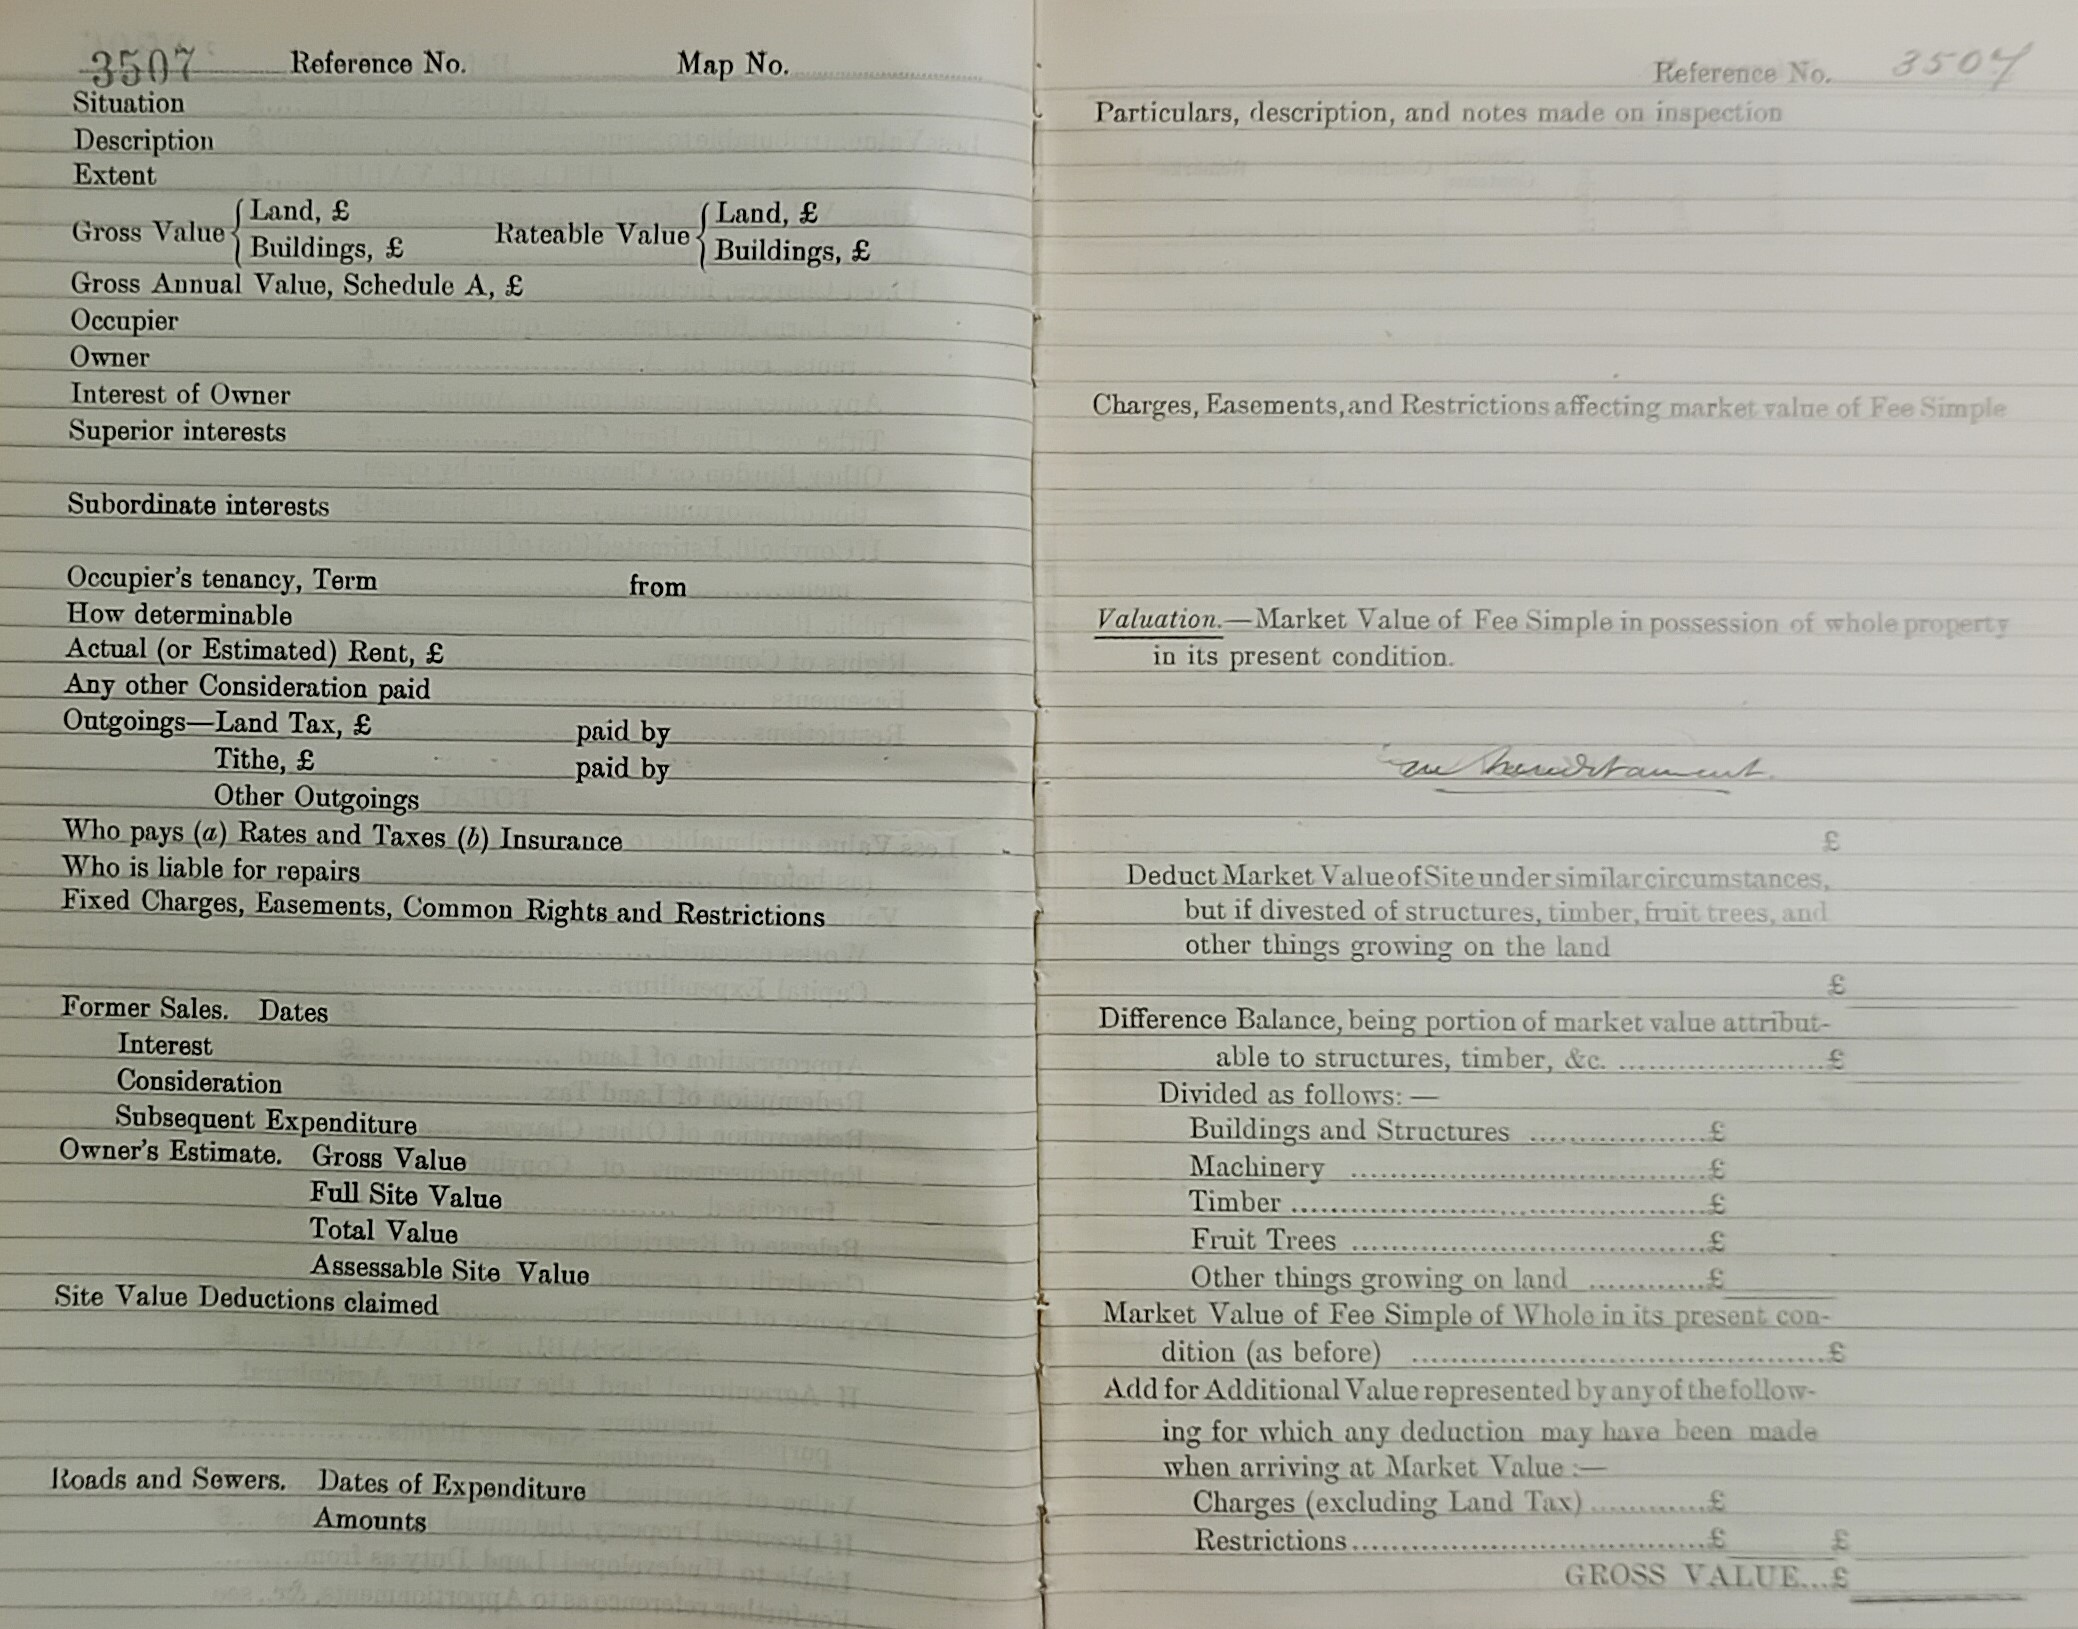 3507 Reference No. Map No.
Situation
Description
Extent
Gross Value { Land, £ Rateable Value { Land, £
Buildings, £ Buildings, £
Gross Annual Value, Schedule A, £
Occupier
Owner
Interest of Owner
Superior interests
Subordinate interests
Occupier's tenancy, Term from
How determinable
Actual (or Estimated) Rent, £
Any other Consideration paid
Outgoings—Land Tax, £ paid by
Tithe, £ paid by
Other Outgoings
Who pays (a) Rates and Taxes (b) Insurance
Who is liable for repairs
Fixed Charges, Easements, Common Rights and Restrictions
Former Sales. Dates
Interest
Consideration
Subsequent Expenditure
Owner's Estimate. Gross Value
Full Site Value
Total Value
Assessable Site Value
Site Value Deductions claimed
Roads and Sewers. Dates of Expenditure
Amounts
Reference No. 3507
Particulars, description, and notes made on inspection
Charges, Easements, and Restrictions affecting market value of Fee Simple
Valuation.—Market Value of Fee Simple in possession of whole property
in its present condition.
hereditament
£
Deduct Market Value of Site under similar circumstances,
but if divested of structures, timber, fruit trees, and
other things growing on the land
£
Difference Balance, being portion of market value attribut-
able to structures, timber, &c. ........................£
Divided as follows:—
Buildings and Structures ..................£
Machinery ....................................£
Timber ..........................................£
Fruit Trees ....................................£
Other things growing on land ............£
Market Value of Fee Simple of Whole in its present con-
dition (as before) ..........................................£
Add for Additional Value represented by any of the follow-
ing for which any deduction may have been made
when arriving at Market Value:—
Charges (excluding Land Tax) ............£
Restrictions ....................................£ £
GROSS VALUE...£